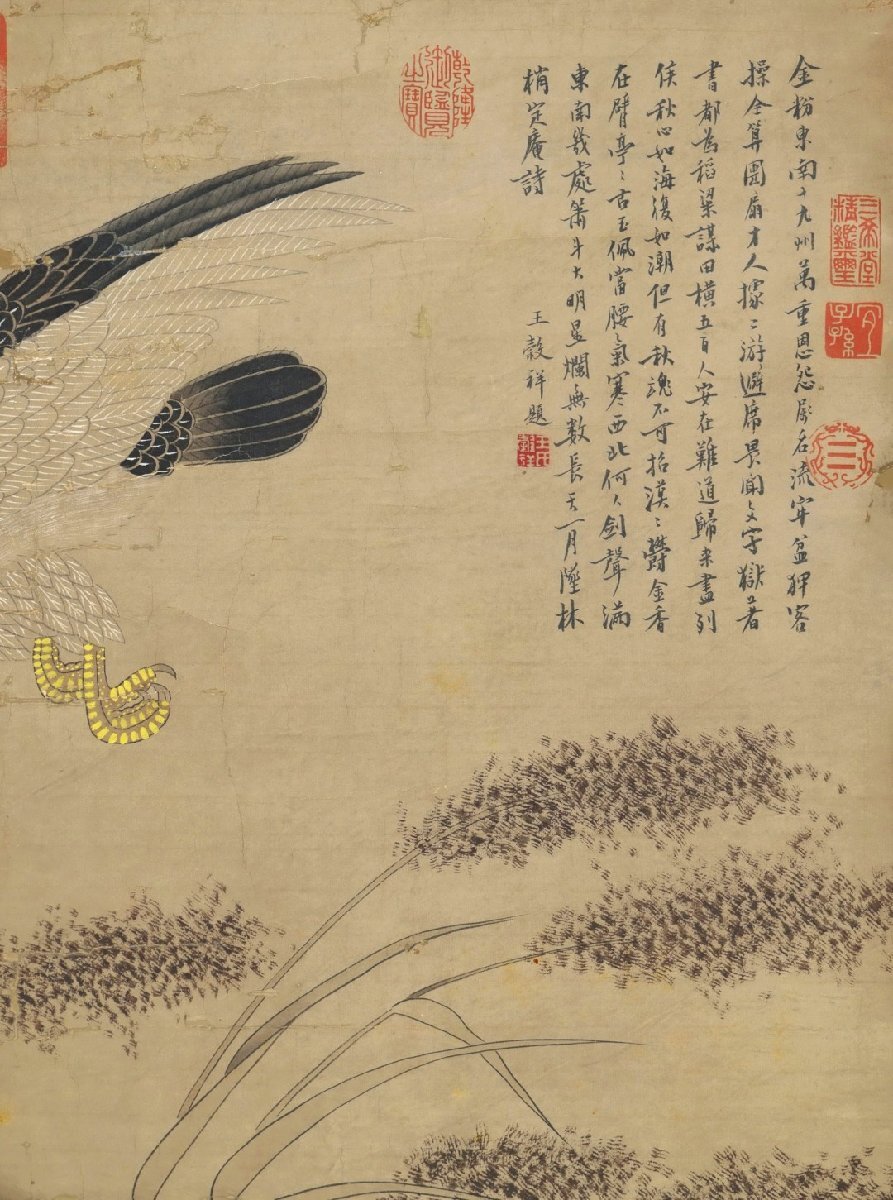 三希堂精鑑璽
宜子孫
金粉東南九州萬重恩怨屬名流牢盆狎客
操全算團扇才人據上游避席畏聞文字獄著
書都為稻粱謀田橫五百人安在難道歸来盡列
侯秋心如海復如潮但有秋魂不可招漠漠鬱金香
在臂亭亭古玉佩當腰氣寒西北何人劍聲滿
東南幾處簫斗大明星爛無數長天一月墜林
梢定庵詩
王穀祥題
乾隆御覽之寶